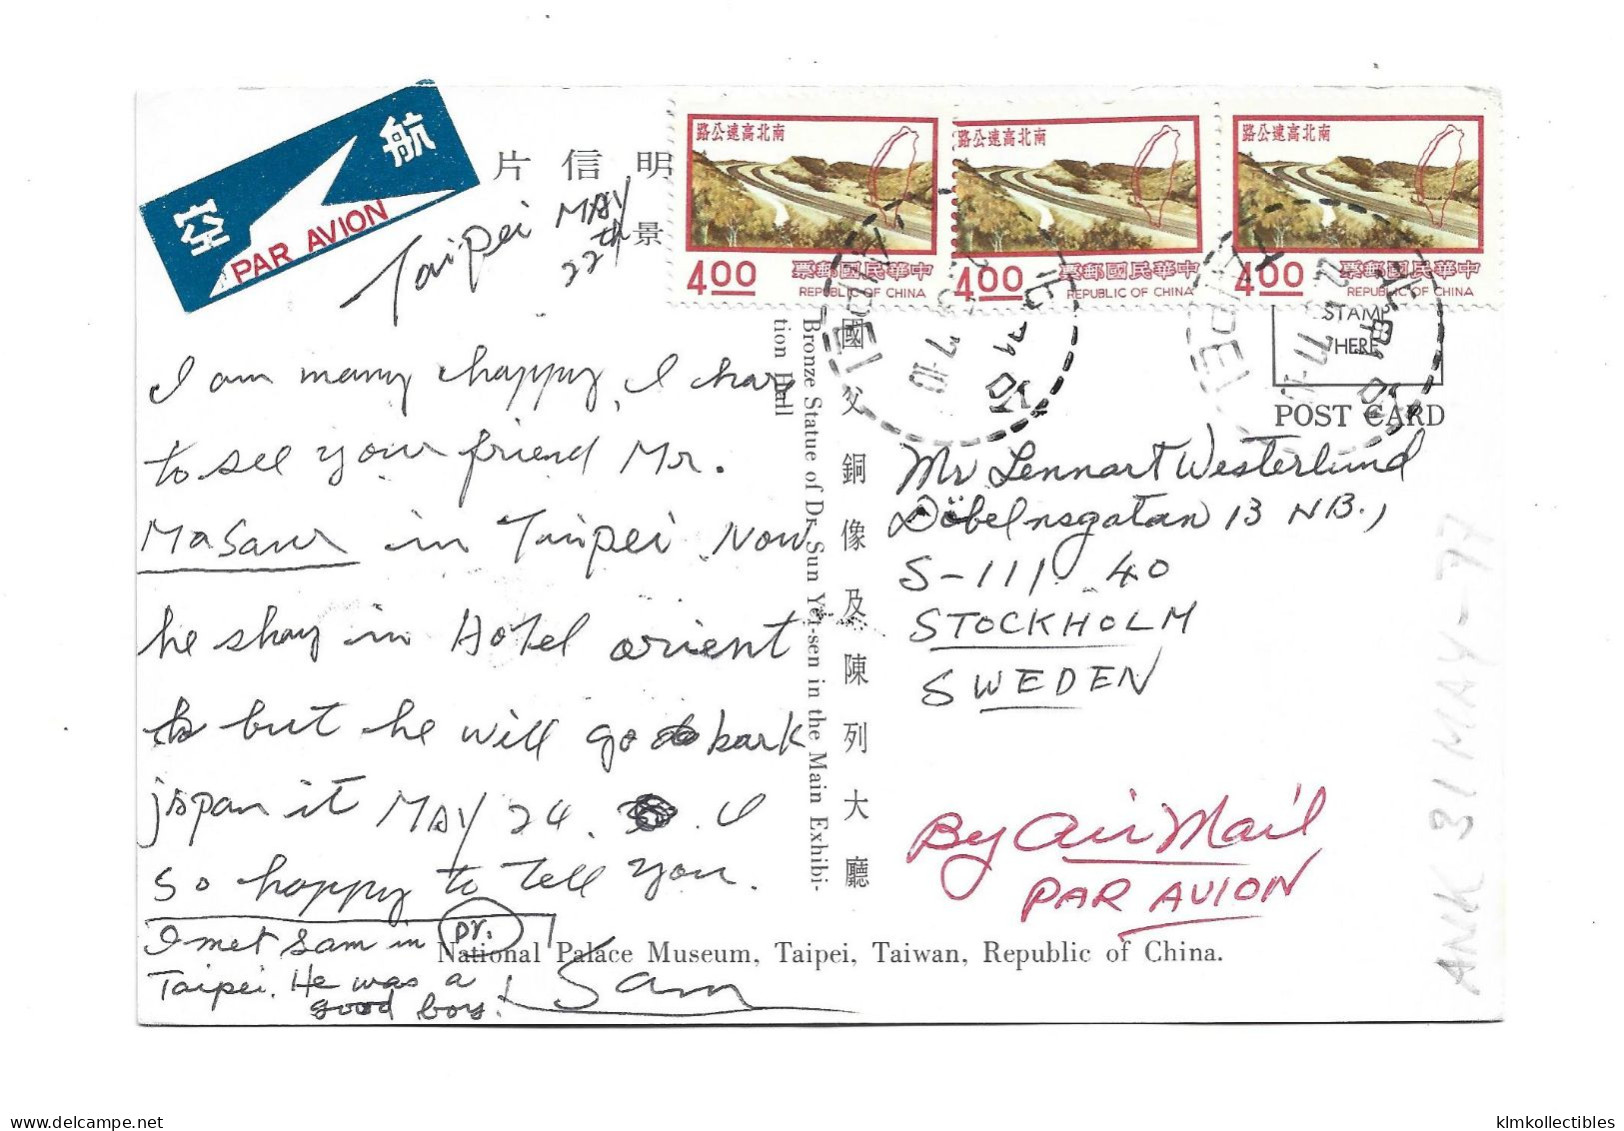 航空
PAR AVION
明信片
景
Taipei MAY
22th
南北高速公路
4.00
中華民國郵票
REPUBLIC OF CHINA
南北高速公路
4.00
中華民國郵票
REPUBLIC OF CHINA
南北高速公路
4.00
中華民國郵票
REPUBLIC OF CHINA
TAIPEI
TAIPEI
STAMP
HERE
POST CARD
I am many happy, I have
to see your friend Mr.
Masaur in Taipei Now
he shay in Hotel orient
but he will go bark
japan it MAY 24. I
so happy to tell you.
Sam
I met Sam in
Taipei. He was a
good boy.
Dr.
國父銅像及陳列大廳
Bronze Statue of Dr. Sun Yet-sen in the Main Exhibi-
tion Hall
Mr Lennart Westerlund
Döbelnsgatan 13 NB.,
S-111 40
STOCKHOLM
SWEDEN
By Air Mail
PAR AVION
ANK 31 MAY-77
National Palace Museum, Taipei, Taiwan, Republic of China.
klmkollectibles